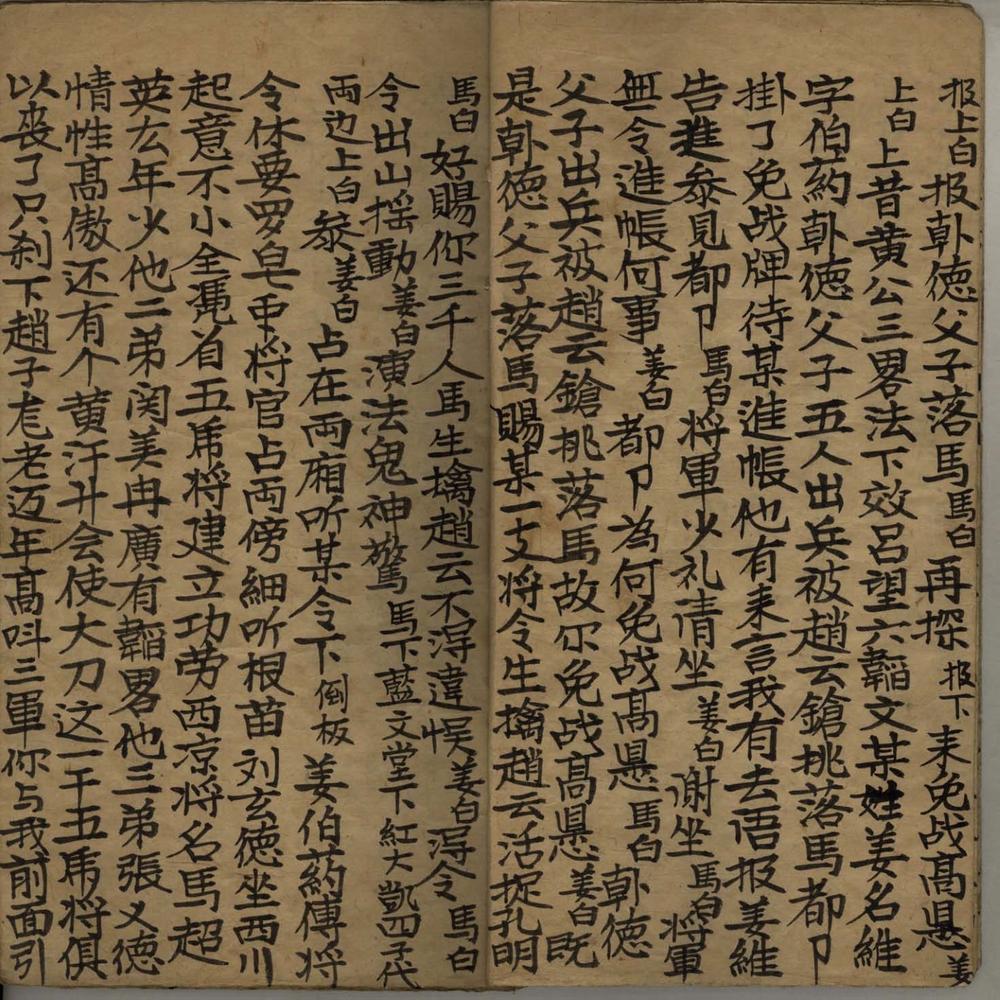 报上白报韩德父子落馬馬白再探报下耒免战髙懸姜
上白上昔黄公三畧法下效吕望六韜文某姓姜名維
字伯葯韩德父子五人出兵被趙云鎗挑落馬都卩
掛了免战牌待某進帳他有耒言我有去语报姜維
告進叅見都卩馬白将軍少礼請坐姜白谢坐馬白将軍
無令進帳何事姜白都卩為何免战髙懸馬白韩德
父子出兵被趙云鎗挑落馬故尔免战髙懸姜白既
是韩德父子落馬賜某一支将令生擒趙云活捉孔明
馬白好賜你三千人馬生擒趙云不淂違悮姜白淂令馬白
令出山摇動姜白演法鬼神驚馬下藍文堂下紅大凱四子代
両边上白叅姜白占在両廂听某令下倒板姜伯葯傅将
令休要罗皂衆将官占両傍細听根苗刘玄德坐西川
起意不小全凴着五乕将建立功劳西凉将名馬超
英玄年少他二弟関美冉廣有韜畧他三弟張乂德
情性髙傲还有个黄汗升会使大刀这一干五乕将俱
以丧了只剩下趙子龙老迈年髙呌三軍你与我前面引